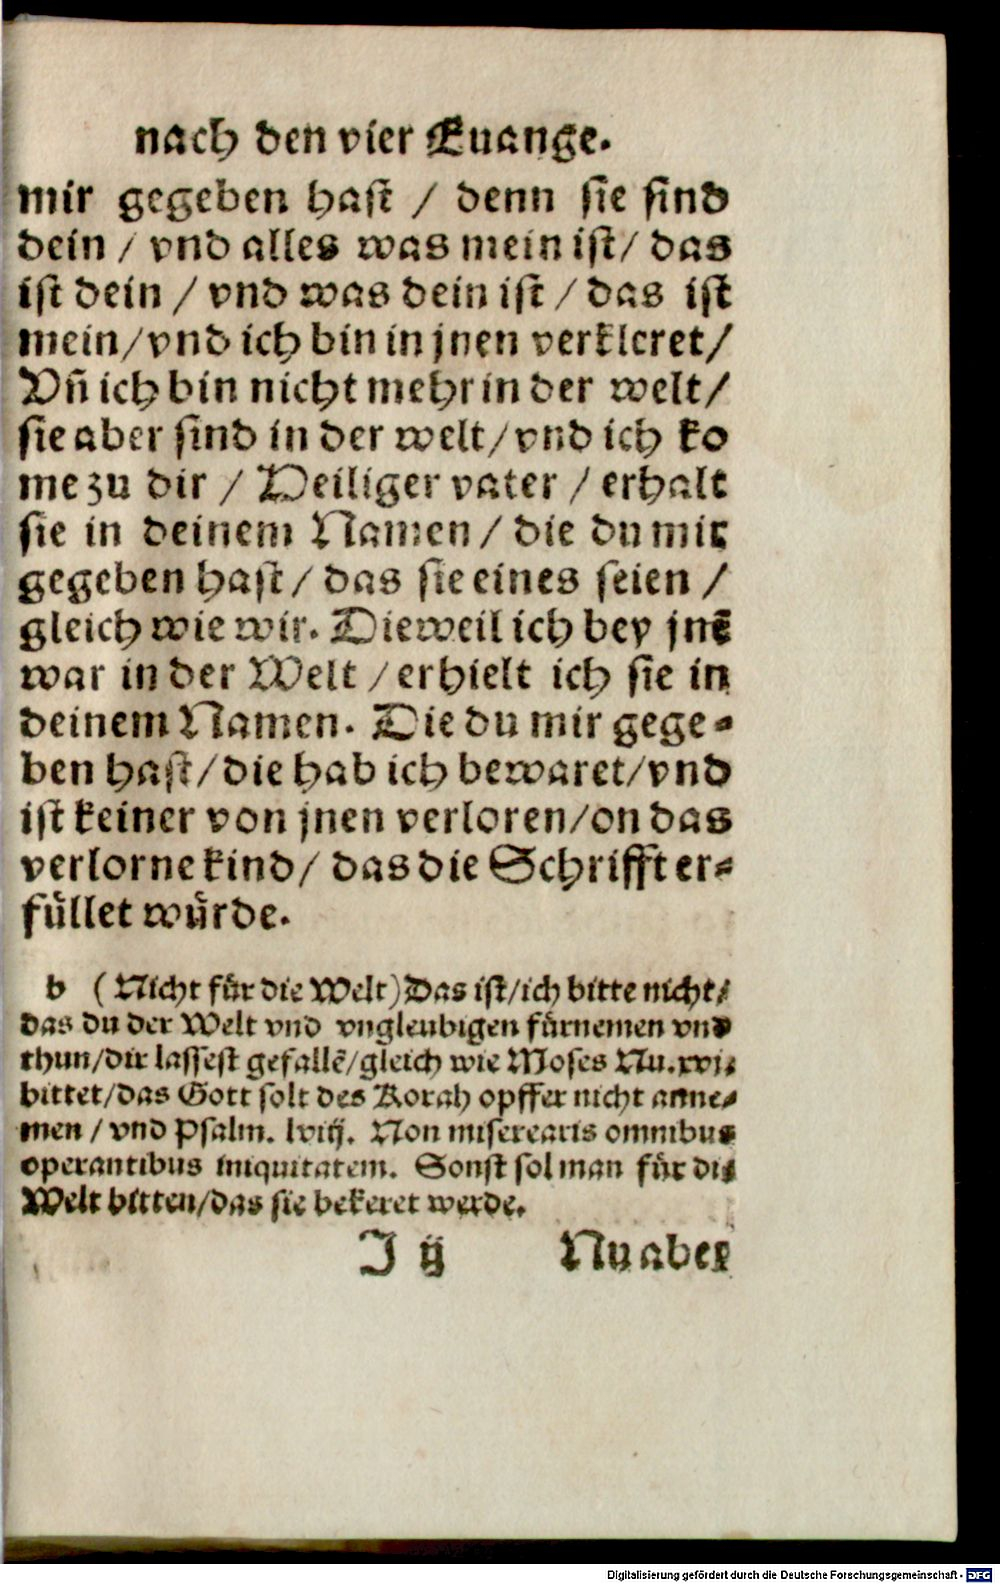 nach den vier Euange.
mir gegeben hast / denn sie sind
dein / vnd alles was mein ist / das
ist dein / vnd was dein ist / das ist
mein/vnd ich bin in jnen verkleret/
Vñ ich bin nicht mehr in der welt/
sie aber sind in der welt/vnd ich ko
me zu dir / Heiliger vater / erhalt
sie in deinem Namen / die du mir
gegeben hast / das sie eines seien /
gleich wie wir. Dieweil ich bey jnẽ
war in der Welt / erhielt ich sie in
deinem Namen. Die du mir gege-
ben hast/die hab ich bewaret/vnd
ist keiner von jnen verloren/on das
verlorne kind/ das die Schrifft er-
füllet würde.
b (Nicht für die Welt) Das ist/ich bitte nicht/
das du der Welt vnd vngleubigen fürnemen vnd
thun/dir lassest gefallẽ/gleich wie Moses Nu.xvi.
bittet/das Gott solt des Korah opffer nicht anne-
men / vnd Psalm. lviij. Non miserearis omnibus
operantibus iniquitatem. Sonst sol man für die
Welt bitten/das sie bekeret werde.
J ij Nu aber
Digitalisierung gefördert durch die Deutsche Forschungsgemeinschaft - DFG